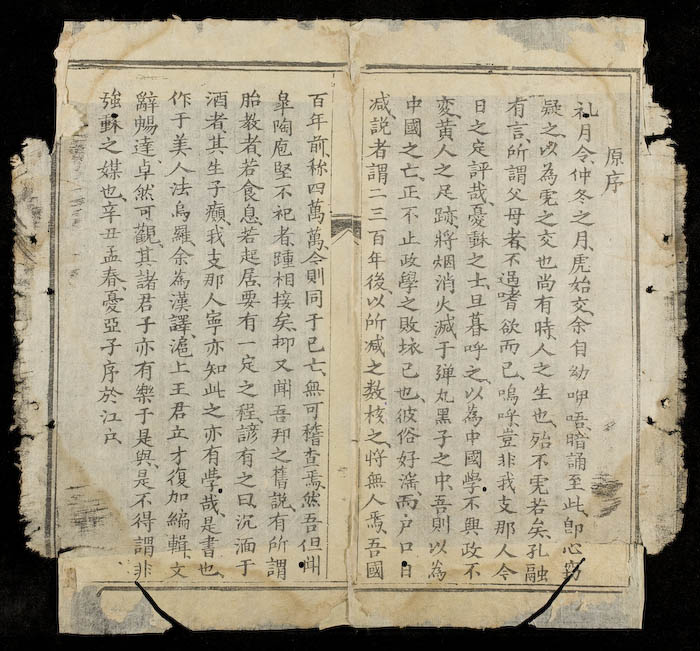 原序
礼月令、仲冬之月、虎始交、余自幼咿唔、暗誦至此、即心竊
疑之、以為虎之交也尚有時、人之生也、殆不虎若矣、孔融
有言、所謂父母者、不過嗜欲而已、嗚呼、豈非我支那人今
日之定評哉、憂蘇之士、旦暮呼之、以為中國學不興政不
変、黄人之足跡、將烟消火滅于弹丸黑子之中、吾則以為
中國之亡、正不止政學之敗壊已也、彼俗好滛、而戸口日
减、説者謂二三百年後以所减之数核之、将無人焉、吾國
百年前、称四萬萬、今則同于已亡、無可稽查焉、然吾但聞
皐陶庖堅不祀者、踵相接矣、抑又聞吾邦之舊説、有所謂
胎教者、若食息、若起居、要有一定之程、諺有之曰、沉湎于
酒者、其生子癲、我支那人寧亦知此之亦有學哉、是書也、
作于美人法烏羅、余為漢譯、滬上王君立才復加編輯、文
辭暢達、卓然可觀、其諸君子亦有樂于是與、是不得謂非
強蘇之媒也、辛丑孟春、憂亞子序於江戸、